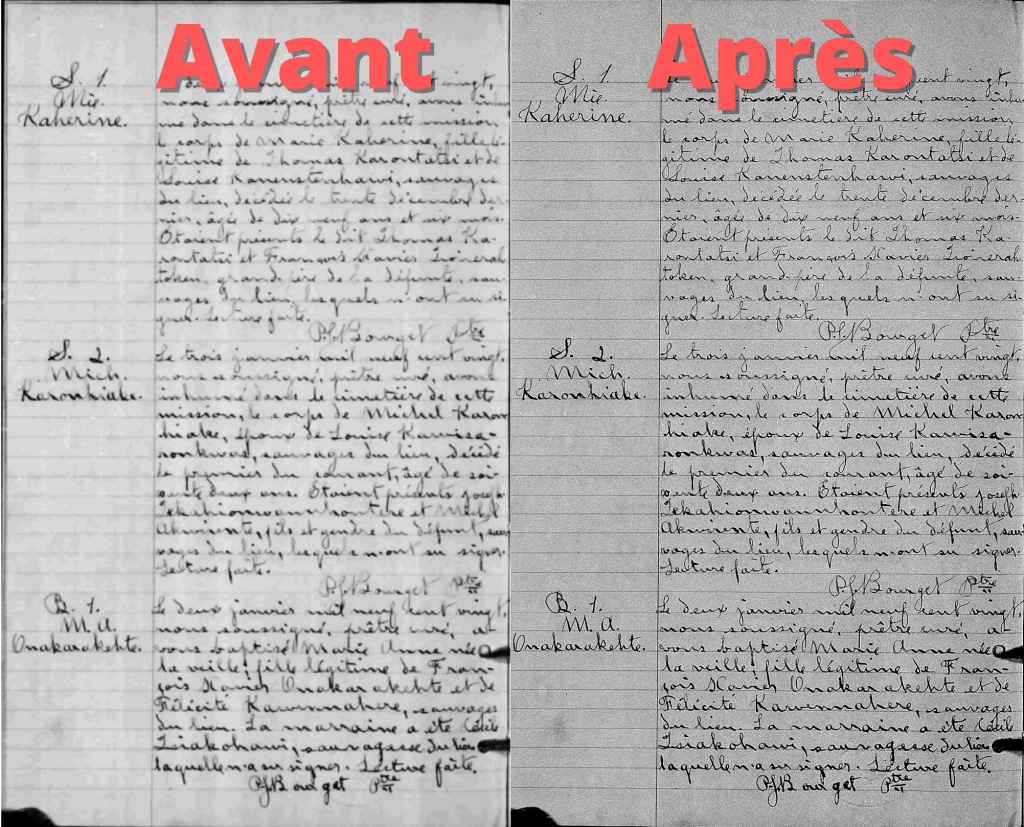 Avant
S. 1.
Mie.
Kaherine.
vingt,
nous soussigné, prêtre curé, avons inhu
mé dans le cimetière de cette mission
le corps de Marie Kaherine, fille lé-
gitime de Thomas Karontatsi et de
Louise Kanenstenhawi, sauvages
du lieu, décédée le trente décembre der-
nier, âgée de dix neuf ans et six mois.
Etaient présents le dit Thomas Ka-
rontatsi et François Xavier
token, grand-père de la défunte, sau-
vages du lieu, lesquels n'ont su si-
gner. Lecture faite.
P.J. Bourget Ptre
S. 2.
Mich.
Karonhiake.
Le trois janvier mil neuf cent vingt,
nous soussigné, prêtre curé, avons
inhumé dans le cimetière de cette
mission, le corps de Michel Karon
hiake, époux de Louise Kawisa-
ronkwas, sauvages du lieu, décédé
le premier du courant, âgé de soi-
xante deux ans. Etaient présents Joseph
et Michel
Akwirente, fils et gendre du défunt, sau
vages du lieu, lesquels n'ont su signer.
Lecture faite.
P.J. Bourget Ptre
B. 1.
M. A.
Onakarakehte.
Le deux janvier mil neuf cent vingt,
nous soussigné, prêtre curé, a-
vons baptisé Marie Anne née
la veille, fille légitime de Fran-
çois Xavier Onakarakehte et de
Félicité Kawennahere, sauvages
du lieu. La marraine a été Cécile
Tsiakohawi, sauvagesse du lieu
laquelle n'a su signer. Lecture faite.
P.J. Bourget Ptre
Après
S. 1.
Mie.
Kaherine.
cent vingt,
nous soussigné, prêtre curé, avons inhu
mé dans le cimetière de cette mission
le corps de Marie Kaherine, fille lé-
gitime de Thomas Karontatsi et de
Louise Kanenstenhawi, sauvages
du lieu, décédée le trente décembre der-
nier, âgée de dix neuf ans et six mois.
Etaient présents le dit Thomas Ka-
rontatsi et François Xavier
token, grand-père de la défunte, sau-
vages du lieu, lesquels n'ont su si-
gner. Lecture faite.
P.J. Bourget Ptre
S. 2.
Mich.
Karonhiake.
Le trois janvier mil neuf cent vingt,
nous soussigné, prêtre curé, avons
inhumé dans le cimetière de cette
mission, le corps de Michel Karon
hiake, époux de Louise Kawisa-
ronkwas, sauvages du lieu, décédé
le premier du courant, âgé de soi-
xante deux ans. Etaient présents Joseph
et Michel
Akwirente, fils et gendre du défunt, sau
vages du lieu, lesquels n'ont su signer.
Lecture faite.
P.J. Bourget Ptre
B. 1.
M. A.
Onakarakehte.
Le deux janvier mil neuf cent vingt,
nous soussigné, prêtre curé, a-
vons baptisé Marie Anne née
la veille, fille légitime de Fran-
çois Xavier Onakarakehte et de
Félicité Kawennahere, sauvages
du lieu. La marraine a été Cécile
Tsiakohawi, sauvagesse du lieu
laquelle n'a su signer. Lecture faite.
P.J. Bourget Ptre